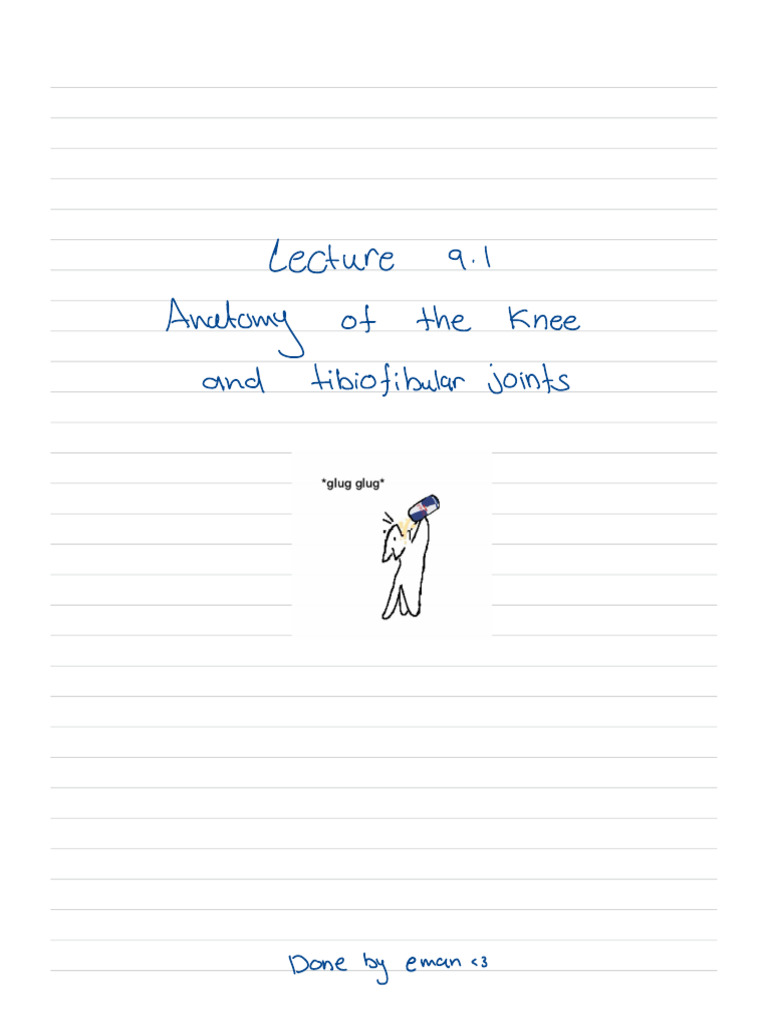 Lecture 9.1
Anatomy of the Knee
and tibiofibular joints
*glug glug*
Done by eman <3